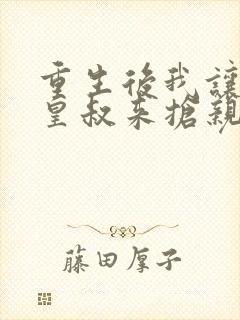 重生後我讓
皇叔来搶親
藤田厚子